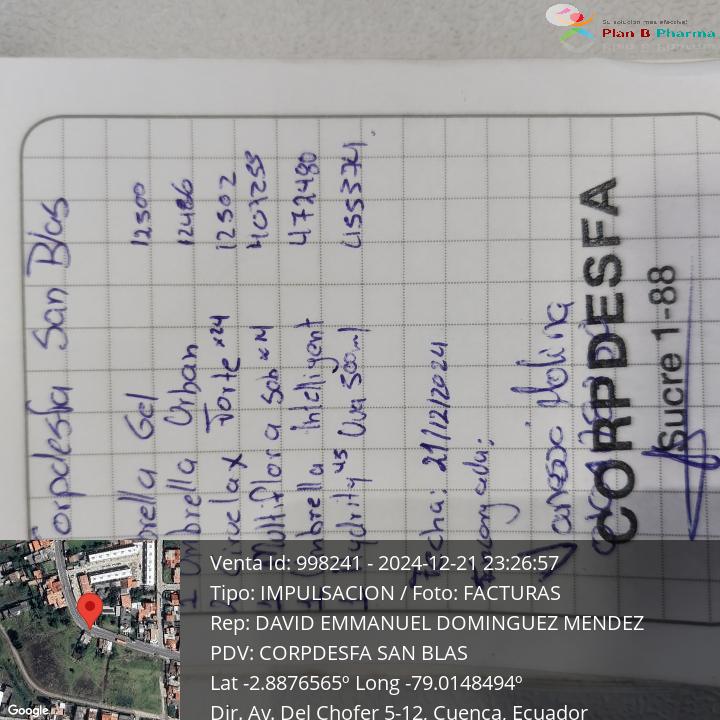 Su solucion mas efectiva!
Plan B Pharma
Corpdesfa San Blas
brella Gel 12500
1 Umbrella Urban 12486
Forte x24 12502
Multiflora Sob x14 407255
Umbrella Intelligent 472480
Hydrity 45 Uva 500ml 4553741
Fecha: 21/12/2024
Encargada:
Molina
CORPDESFA
Sucre 1-88
Venta Id: 998241 - 2024-12-21 23:26:57
Tipo: IMPULSACION / Foto: FACTURAS
Rep: DAVID EMMANUEL DOMINGUEZ MENDEZ
PDV: CORPDESFA SAN BLAS
Lat -2.8876565º Long -79.0148494º
Dir. Av. Del Chofer 5-12, Cuenca, Ecuador
Google